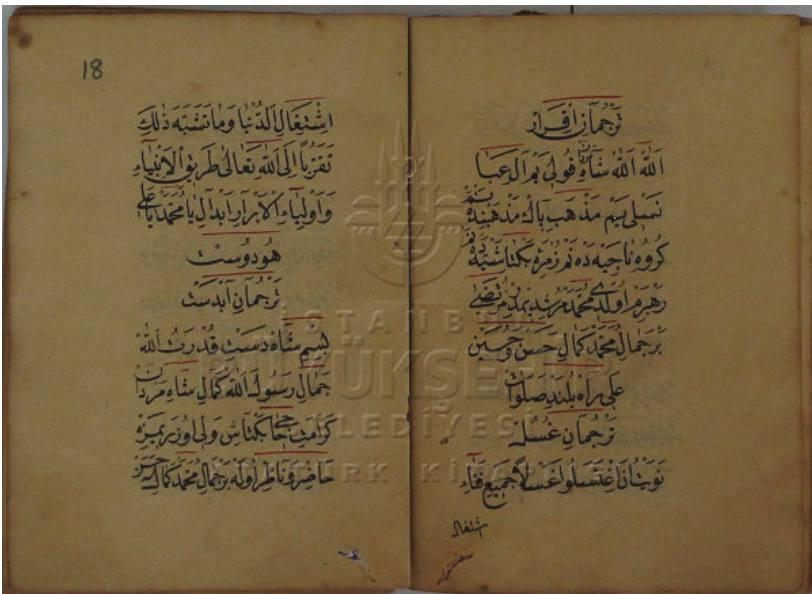 ترجمان اقرار
الله الله شاه قولی یم آل عبا
نسلی یم مذهب پاك مذهبنده یم
كروه ناجیه ده نم زمره بكتاشیده نم
رهبرم اولدی محمد مرشدیمدر مرتضی
بر جمال محمد كمال حسن و حسین
علی راه بلند صلوات
ترجمان غسله
نویت ان اغتسلوا غسلا جمیع
اشتغال
18
اشتغال الدنیا وما تشتبه ذلك
تقربا الی الله تعالی طریق الانبیاء
واولیاء الابرار ابدال یا محمد یا علی
هو دوست
ترجمان آبدست
بسم شاه دست قدرت الله
جمال رسول الله كمال شاه مردان
كرامت حاجی بكتاش ولی اوزریمزه
حاضر و ناظر اوله بر جمال محمد كمال حسن
İSTANBUL
BÜYÜKŞEHİR
BELEDİYESİ
ATATÜRK KİTAPLIĞI